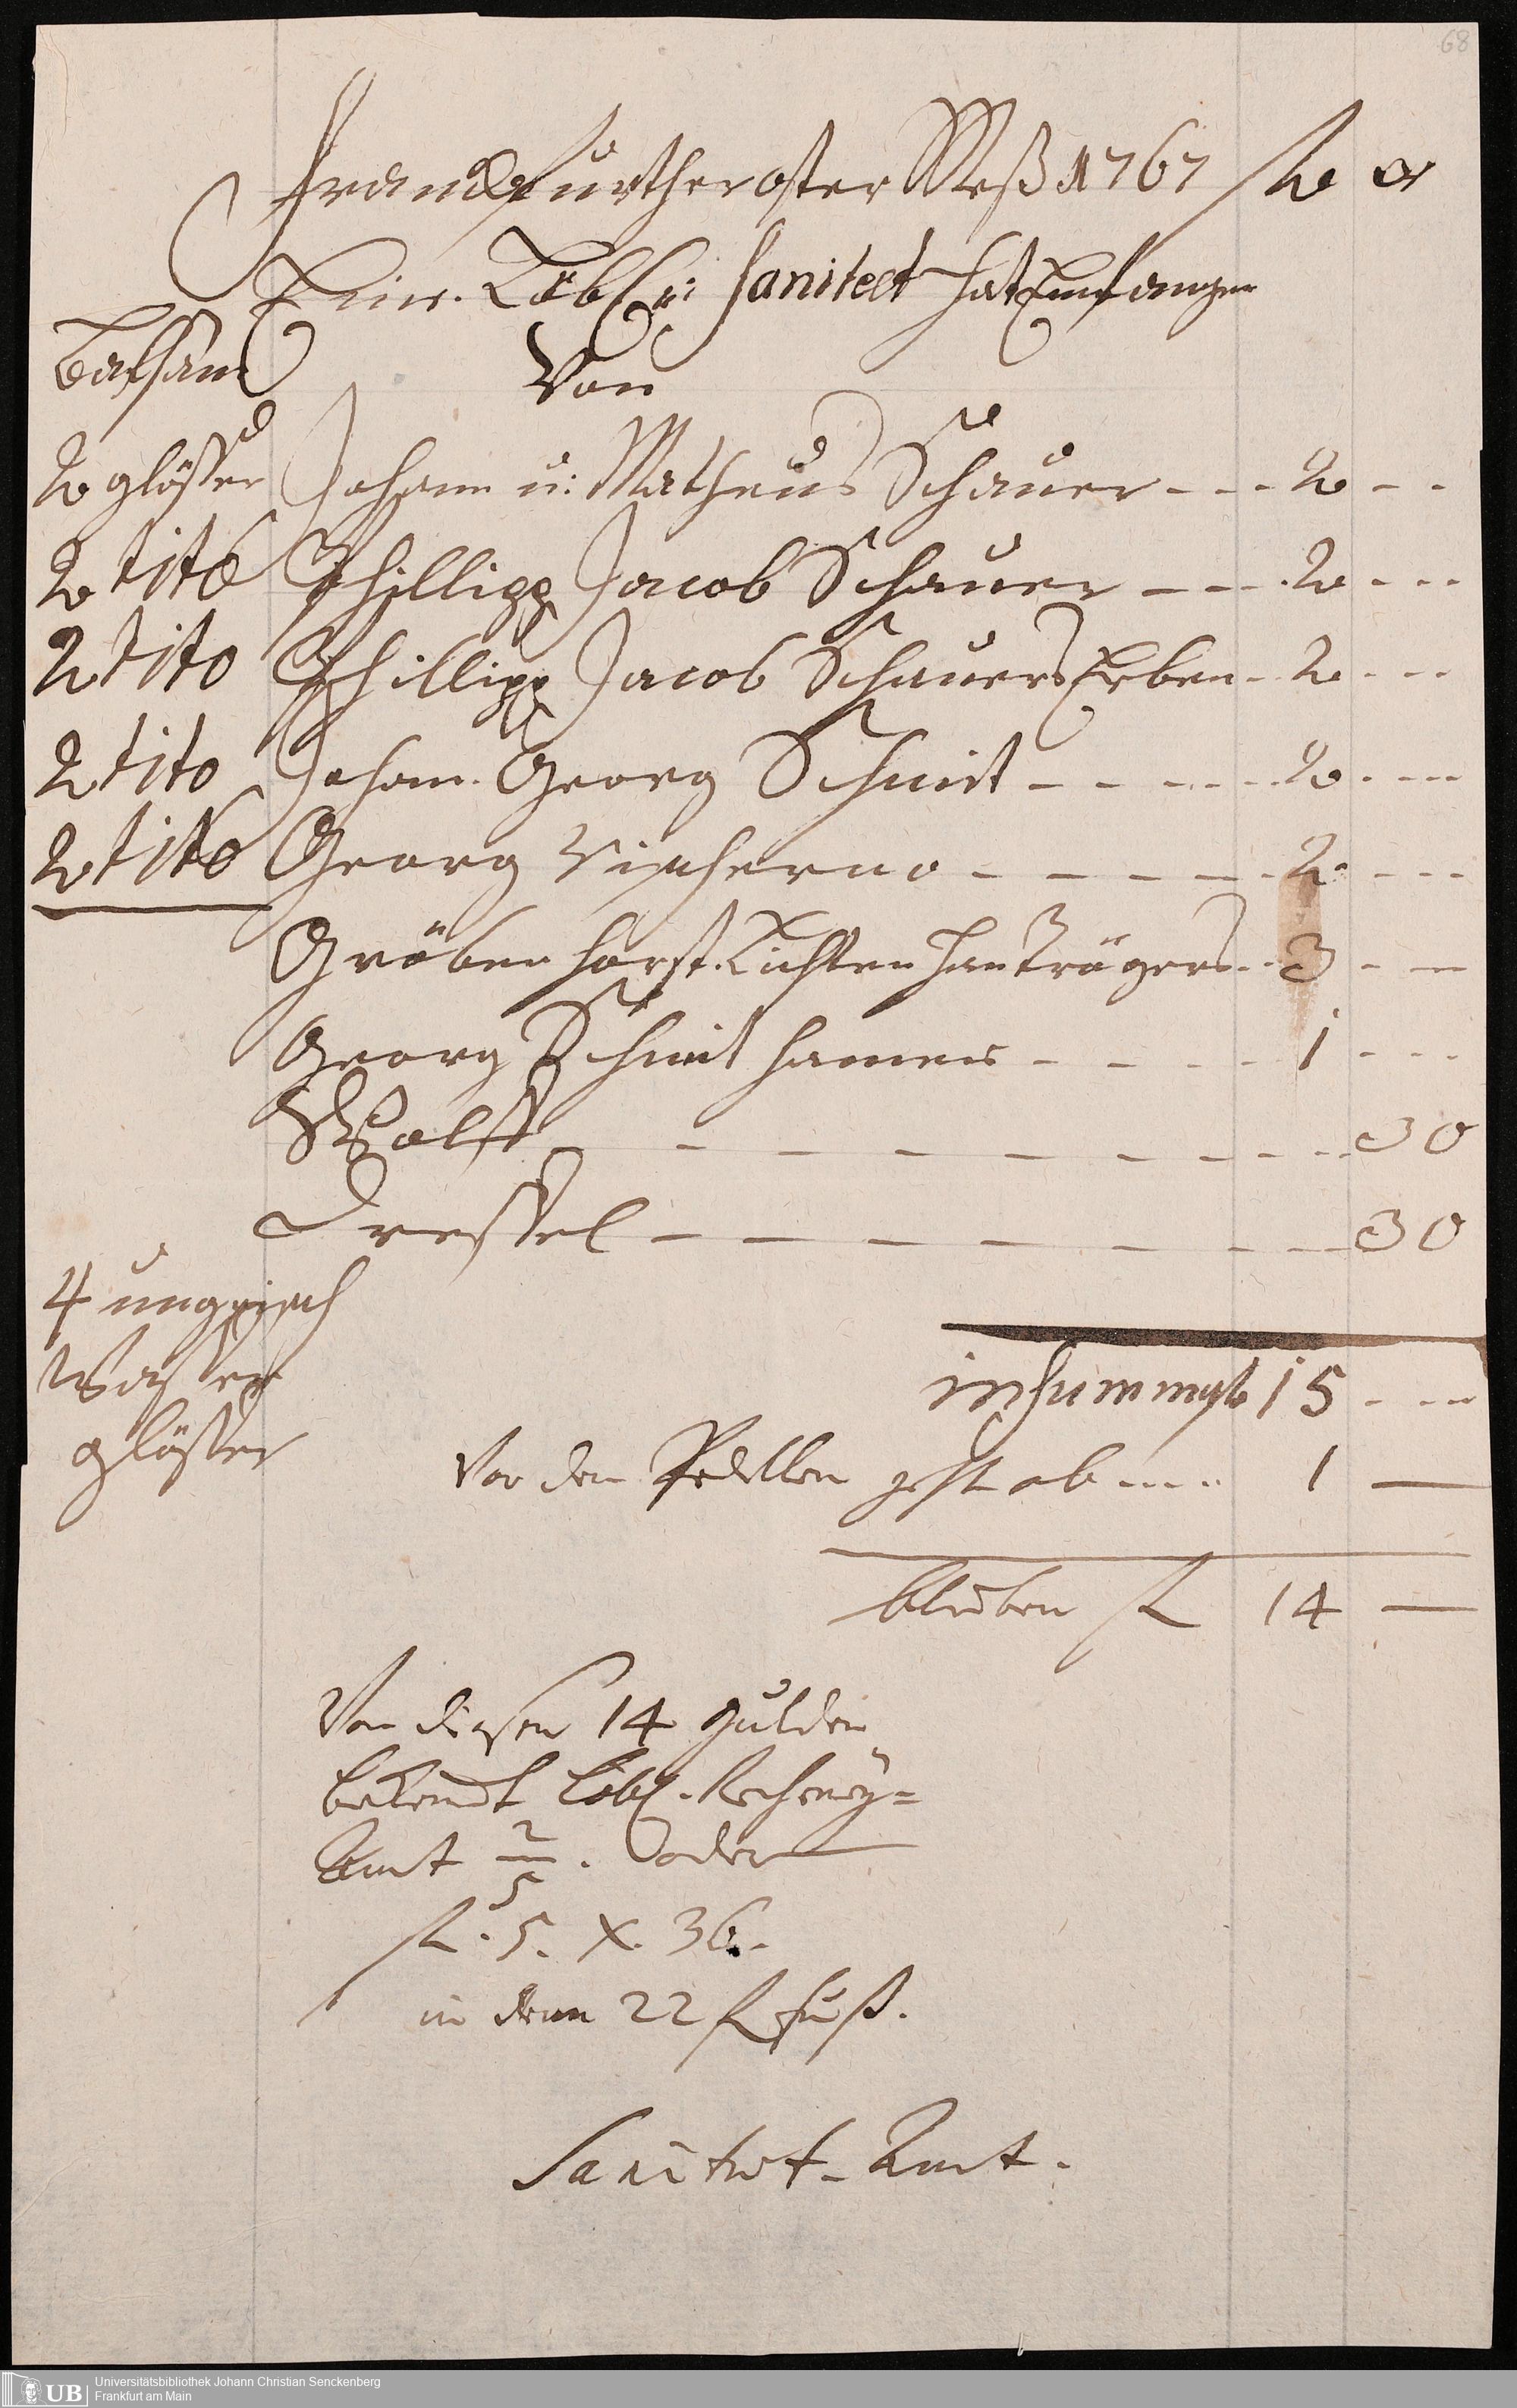 68
Franckfurther oster Meß 1767 fl xr
Eine Löbl: Saniteet hat Empfangen
Balsam Von
2 gläßer Johann u: Matheus Schauer - - - 2 - -
2 tito Phillipp Jacob Schauer - - - 2 - - -
2 tito Phillipp Jacob Schauers Erben - 2 - - -
2 tito Johan. Georg Schmit - - - - - 2 - - -
2 tito Georg - - - - - 2 - - -
Gröber 3 - -
Georg Schmit - - - - 1 - - -
Wolff - - - - - - - - 30
Dressel - - - - - - - 30
4 ungrisch
Wasser
gläßer
in summa fl 15 - - -
Vor den Pedellen geht ab - - - 1 —
bleiben fl 14 —
Von diesen 14 Gulden
bekomt Löbl. Recheney=
Amt 2/5. oder
fl. 5. x. 36.
in dem 22 fl fuß.
Sanitet-Amt.
UB Universitätsbibliothek Johann Christian Senckenberg
Frankfurt am Main